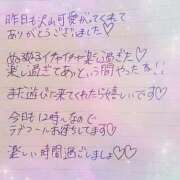 昨日も沢山可愛がってくれて
ありがとうございました♡
イチャイチャ楽し過ぎた♡
楽し過ぎてあっという間やったぁ!!
また遊びに来てくれたら嬉しいです♡
今日も12時〜なので
お待ちしてます♡
楽しい時間過ごしましょ♡